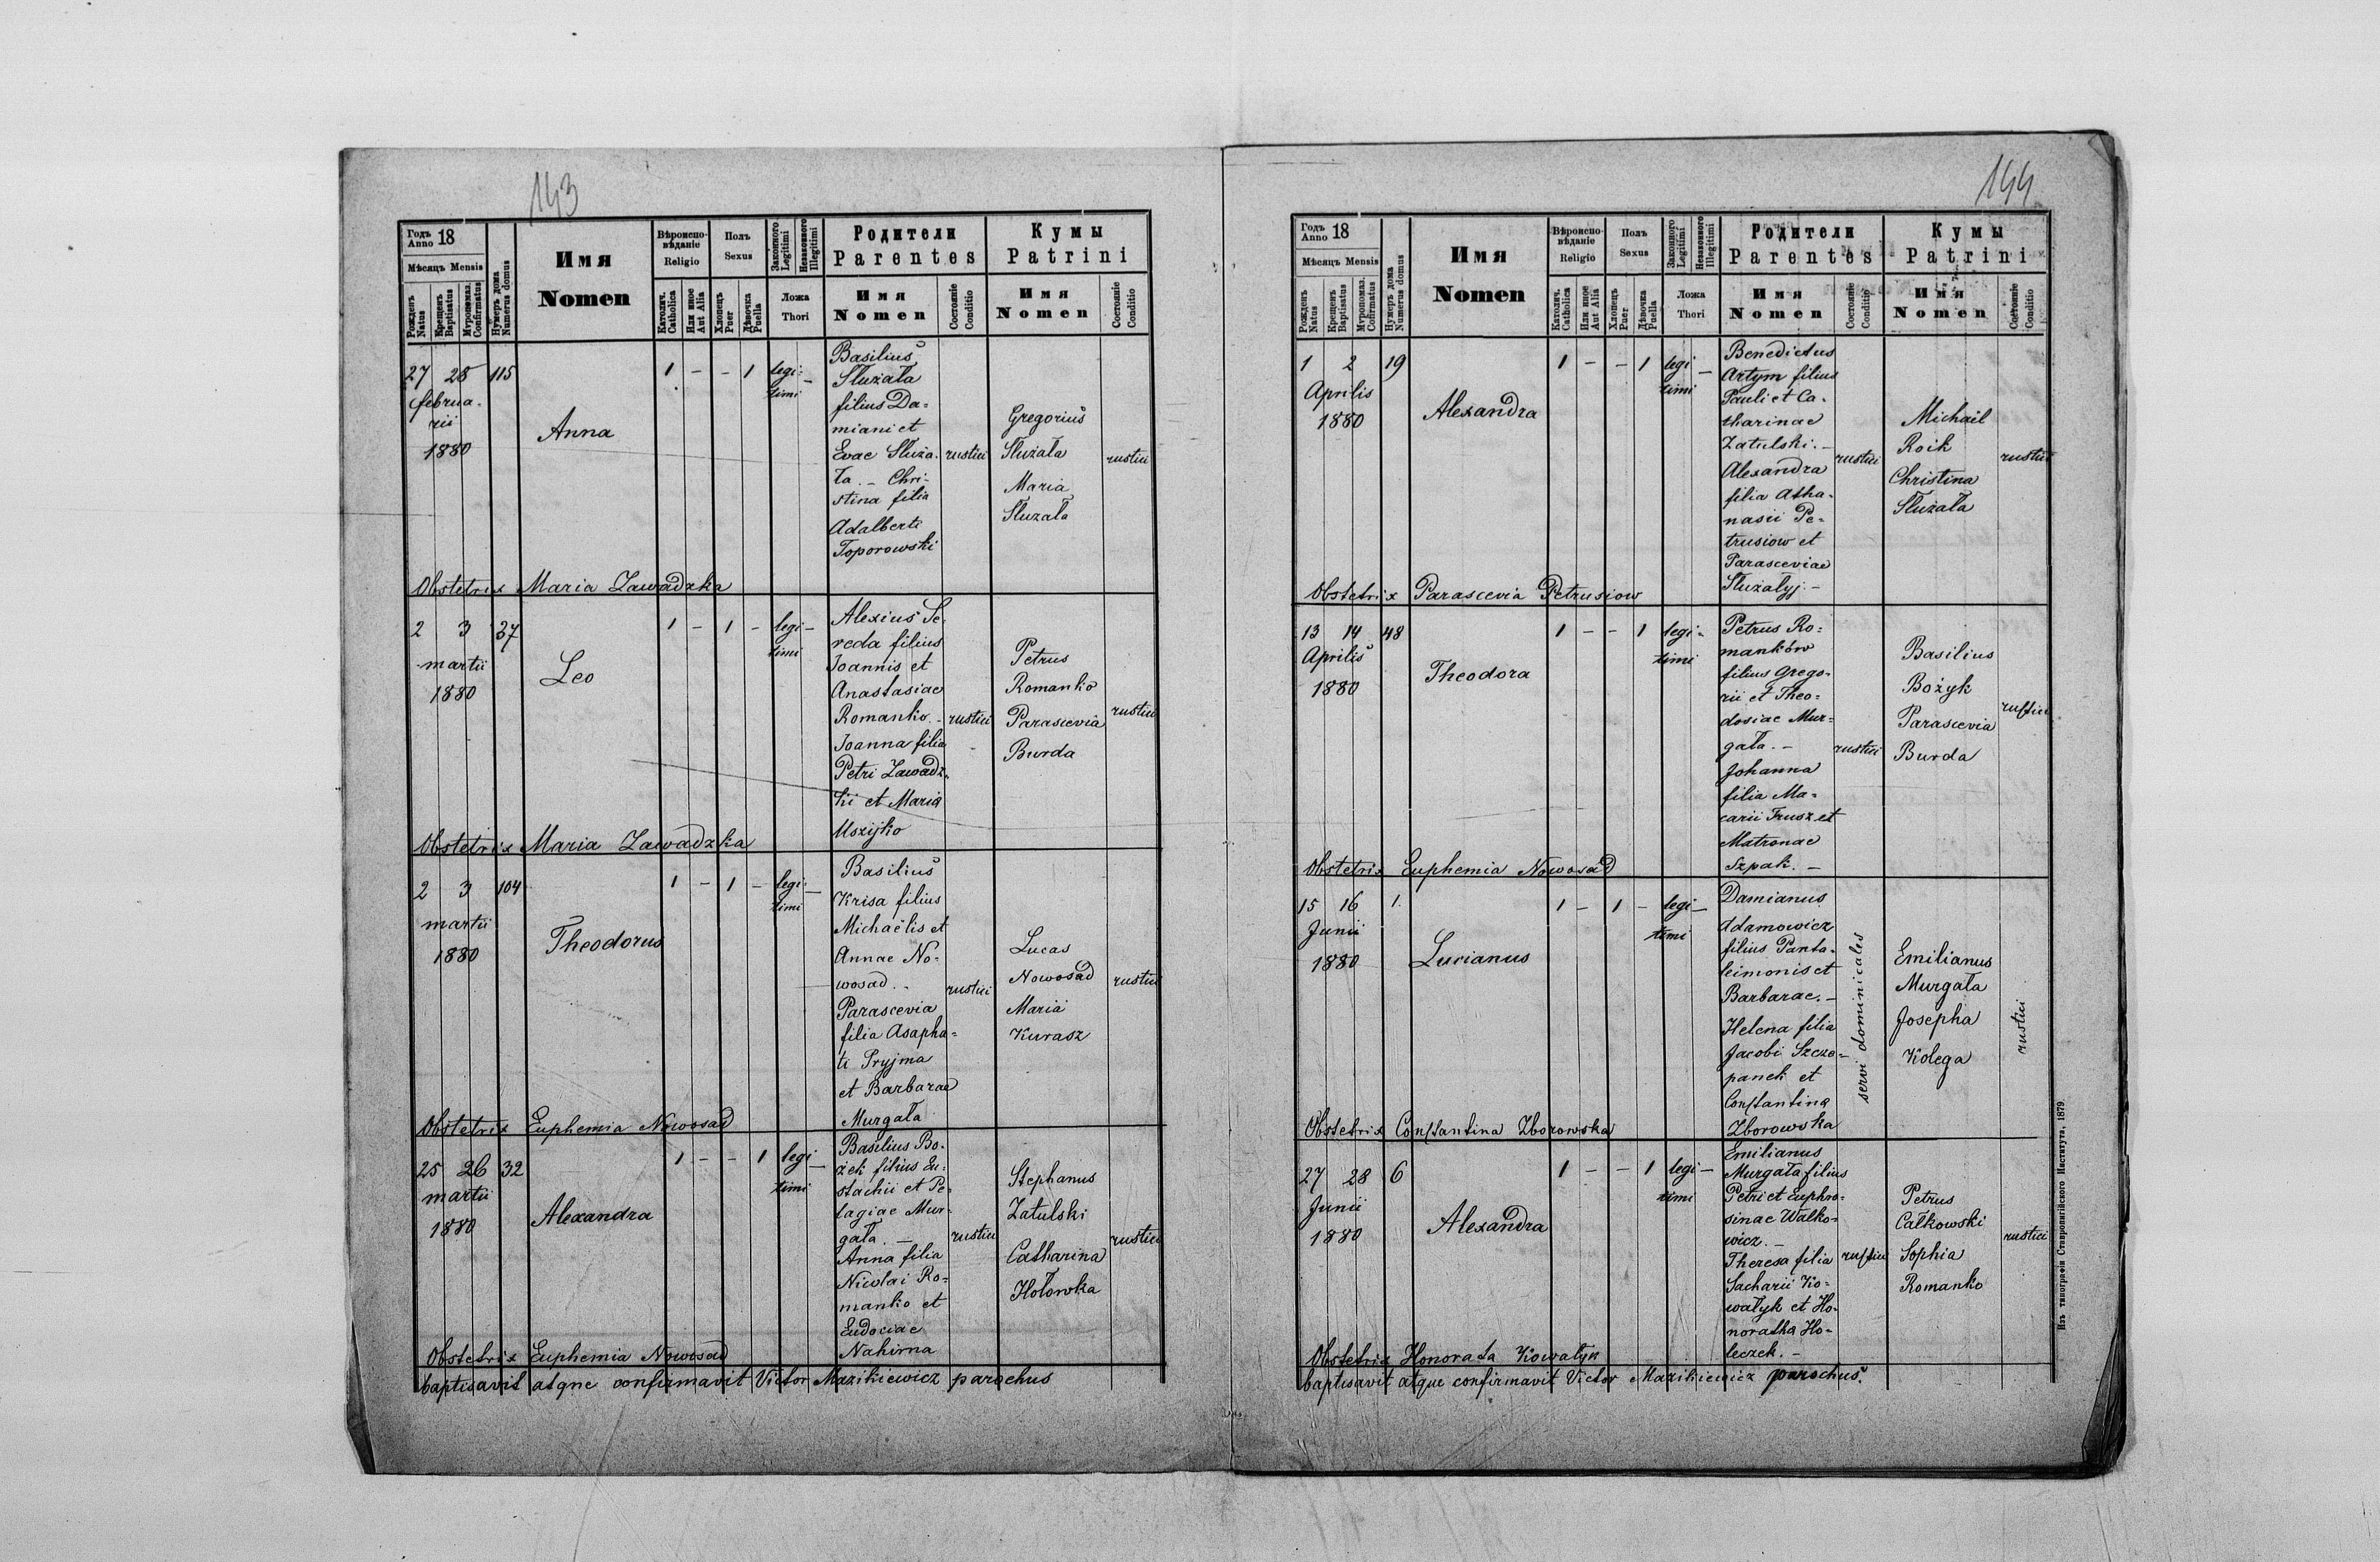 143
Годъ Anno 18
Мѣсяцъ Mensis
Рожденъ Natus
Крещенъ Baptisatus
Муропомаз. Confirmatus
Нумеръ дома Numerus domus
Имя
Nomen
Вѣроиспо-
вѣданіе
Religio
Католич. Catholica
Или иное Aut Alia
Полъ
Sexus
Хлопецъ Puer
Дѣвочка Puella
Законного Legitimi
Незаконного Illegitimi
Ложа
Thori
Родители
Parentes
Имя
Nomen
Состояніе Conditio
Кумы
Patrini
Имя
Nomen
Состояніе Conditio
27 28 115
februa-
rii
1880
Anna
1 - - 1 legi- -
timi
Basilius
Służała
filius Da=
miani et
Evae Służa-
ła. - Chri-
stina filia
Adalberti
Toporowski
rustici
Gregorius
Służała
Maria
Służała
rustici
Obstetrix Maria Zawadzka
2 3 37
martii
1880
Leo
1 - 1 - legi -
timi
Alexius Se-
reda filius
Joannis et
Anastasiae
Romanko. -
Joanna filia
Petri Zawadz-
ki et Maria
Uszijko
rustici
Petrus
Romanko
Parascevia
Burda
rustici
Obstetrix Maria Zawadzka
2 3 104
martii
1880
Theodorus
1 - 1 - legi- -
timi
Basilius
Krisa filius
Michaëlis et
Annae No=
wosad. -
Parascevia
filia Asapha=
ti Pryjma
et Barbarae
Murgała
rustici
Lucas
Nowosad
Maria
Kurasz
rustici
Obstetrix Euphemia Nowosad
25 26 32
martii
1880
Alexandra
1 - - 1 legi -
timi
Basilius Bo-
żek filius Eu-
stachii et Pe-
lagiae Mur-
gała. -
Anna filia
Nicolai Ro-
manko et
Eudociae
Nahirna
rustici
Stephanus
Zatulski
Catharina
Hołowka
rustici
Obstetrix Euphemia Nowosad
baptisavit atque confirmavit Victor Mazikiewicz parochus
144
Годъ Anno 18
Мѣсяцъ Mensis
Рожденъ Natus
Крещенъ Baptisatus
Муропомаз. Confirmatus
Нумеръ дома Numerus domus
Имя
Nomen
Вѣроиспо-
вѣданіе
Religio
Католич. Catholica
Или иное Aut Alia
Полъ
Sexus
Хлопецъ Puer
Дѣвочка Puella
Законного Legitimi
Незаконного Illegitimi
Ложа
Thori
Родители
Parentes
Имя
Nomen
Состояніе Conditio
Кумы
Patrini
Имя
Nomen
Состояніе Conditio
1 2 19
Aprilis
1880
Alexandra
1 - - 1 legi -
timi
Benedictus
Artym filius
Pauli et Ca-
tharinae
Zatulski. -
Alexandra
filia Atha-
nasii Pe-
trusiow et
Parasceviae
Służałyj. -
rustici
Michaïl
Roik
Christina
Służała
rustici
Obstetrix Parascevia Petrusiow
13 14 48
Aprilis
1880
Theodora
1 - - 1 legi-
timi
Petrus Ro=
manków
filius Grego-
rii et Theo-
dosiae Mur=
gała. -
Johanna
filia Ma-
carii Trusz et
Matronae
Szpak. -
rustici
Basilius
Bożyk
Parascevia
Burda
rustici
Obstetrix Euphemia Nowosad
15 16 1.
Junii
1880
Lucianus
1 - 1 - legi -
timi
Damianus
Adamowicz
filius Panta-
leimonis et
Barbarae. -
Helena filia
Jacobi Szcze-
panek et
Constantina
Zborowska
servi dominicales
Emilianus
Murgała
Josepha
Kolega
rustici
Obstetrix Constantina Zborowska
27 28 6
Junii
1880
Alexandra
1 - - 1 legi -
timi
Emilianus
Murgała filius
Petri et Euphro-
sinae Walko-
wicz. -
Theresa filia
Sacharii Ko-
wałyk et Ho-
noratha Ho-
leczek. -
rustici
Petrus
Całkowski
Sophia
Romanko
rustici
Obstetrix Honorata Kowałyk
baptisavit atque confirmavit Victor Mazikiewicz parochus.
Изъ типографіи Ставропигійского Института, 1879.